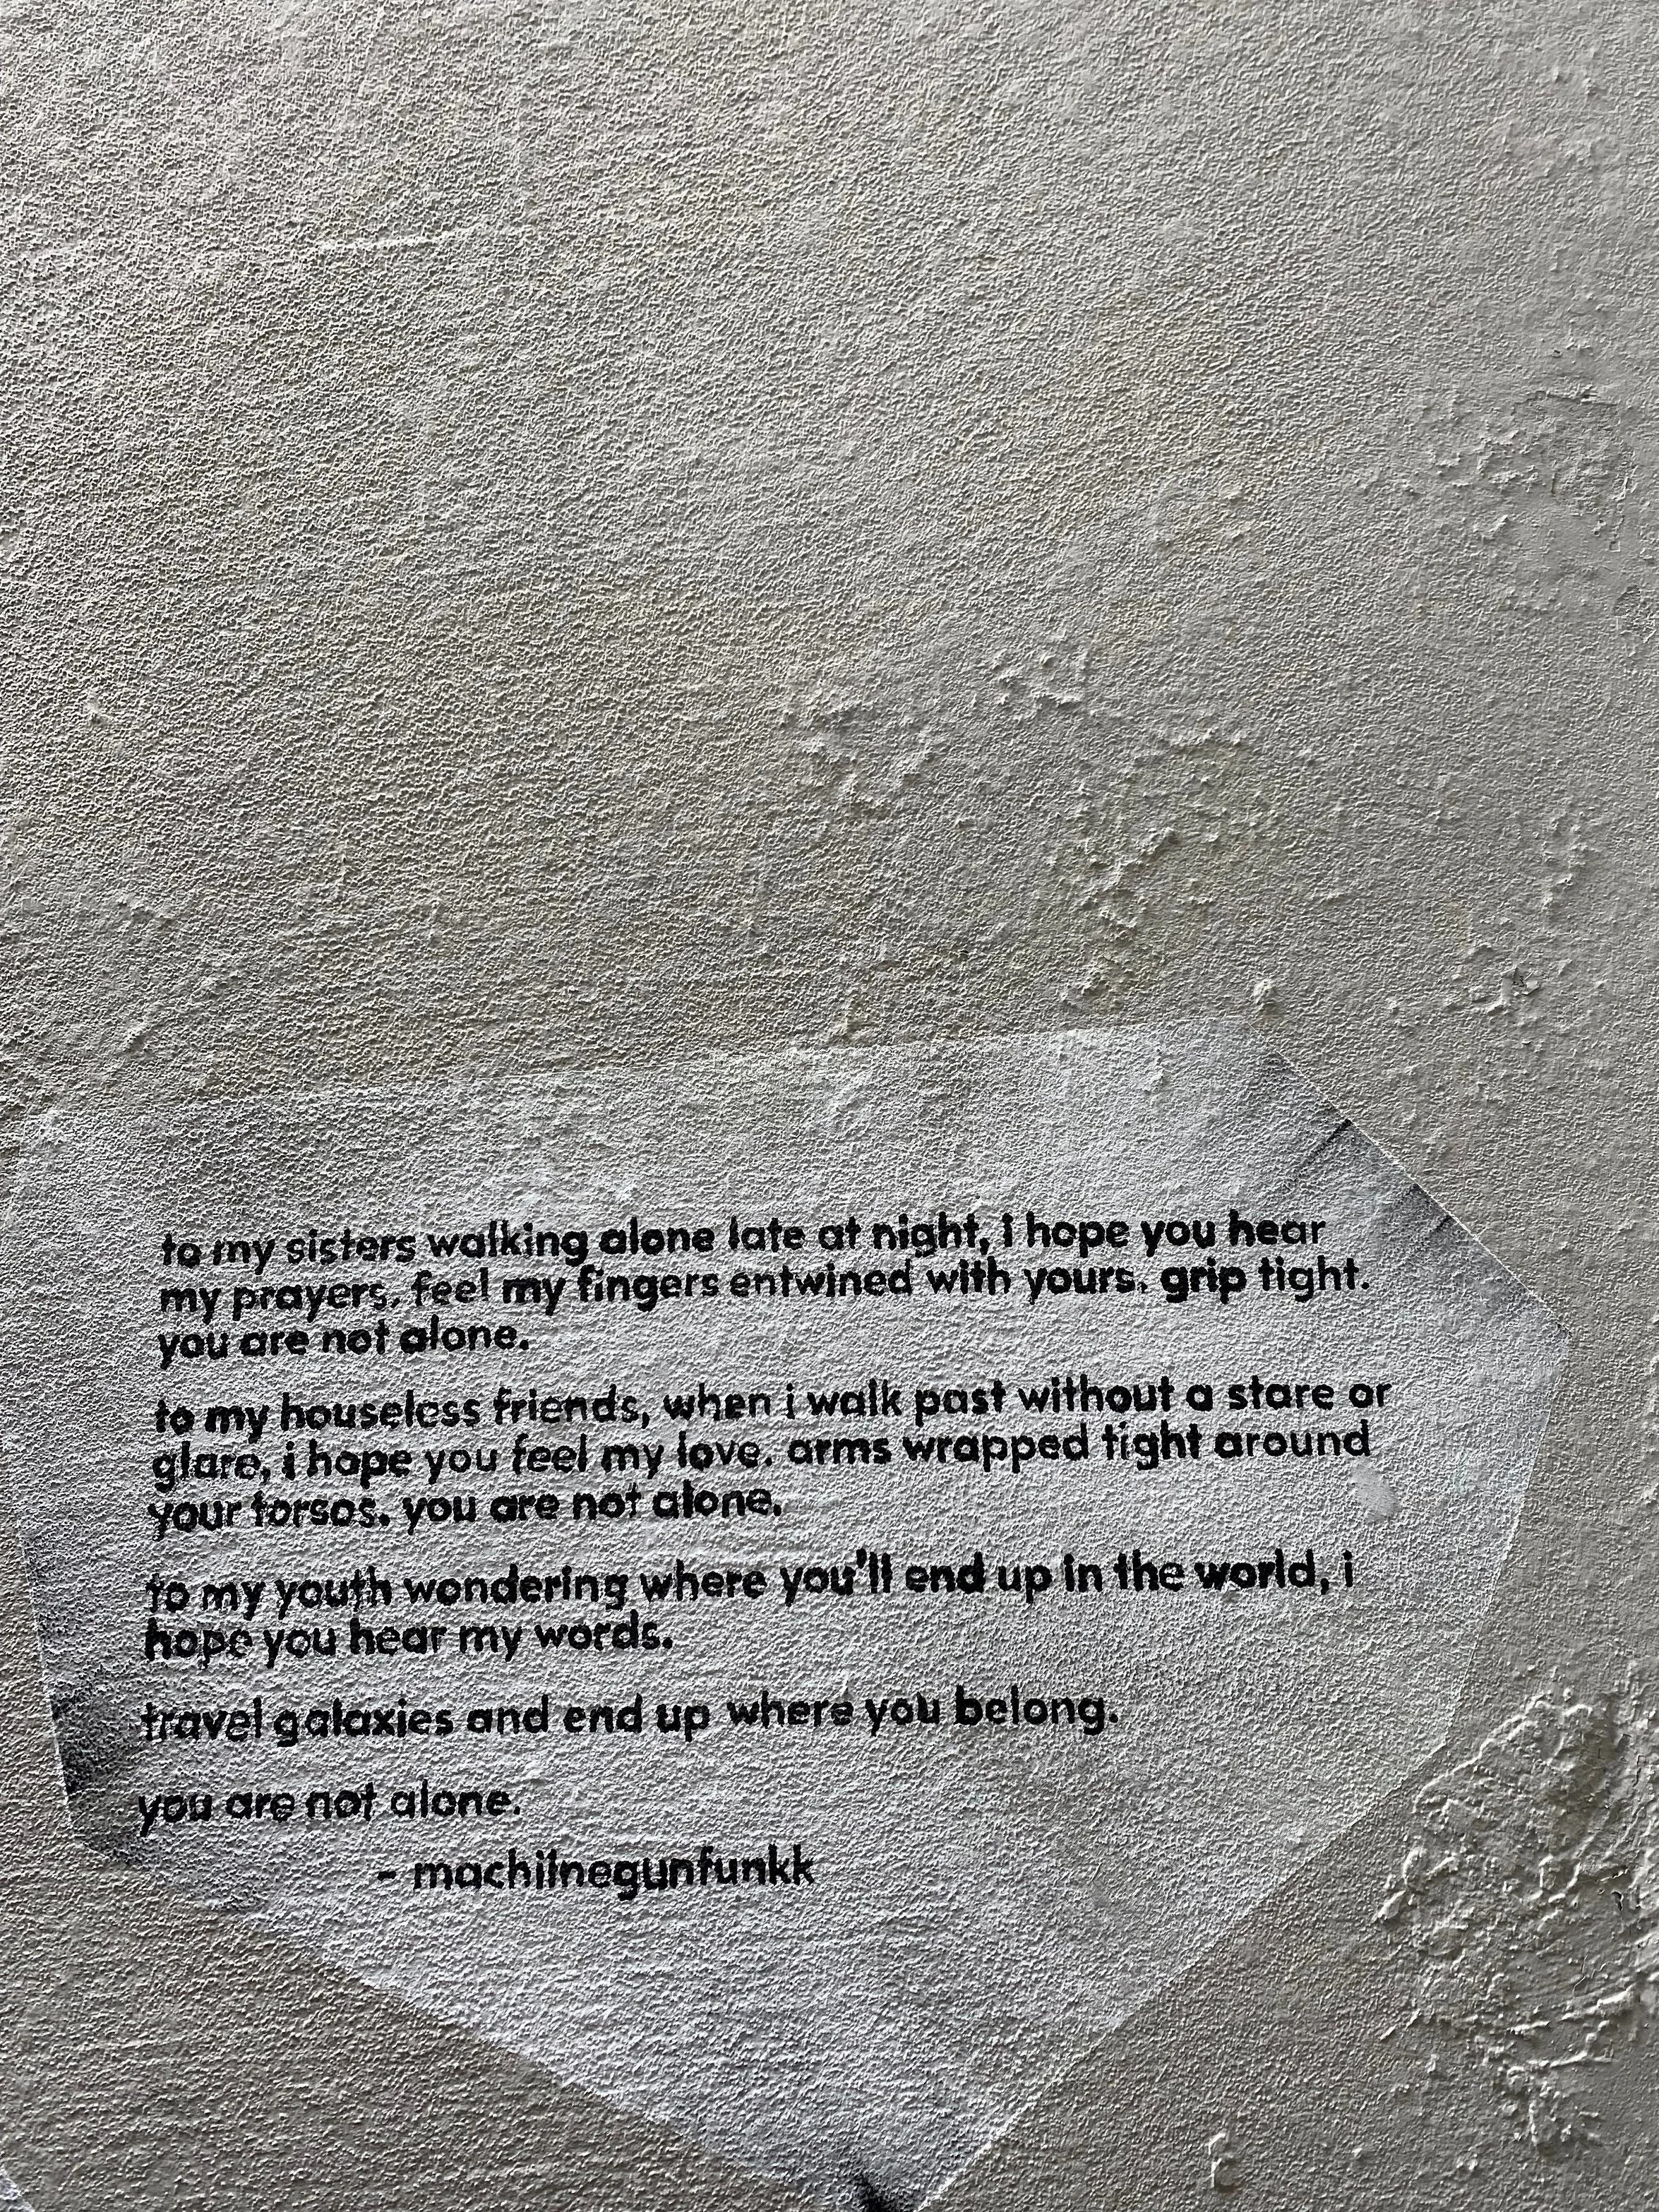 to my sisters walking alone late at night, i hope you hear
my prayers. feel my fingers entwined with yours. grip tight.
you are not alone.
to my houseless friends, when i walk past without a stare or
glare, i hope you feel my love. arms wrapped tight around
your torsos. you are not alone.
to my youth wondering where you'll end up in the world, i
hope you hear my words.
travel galaxies and end up where you belong.
you are not alone.
- machilnegunfunkk